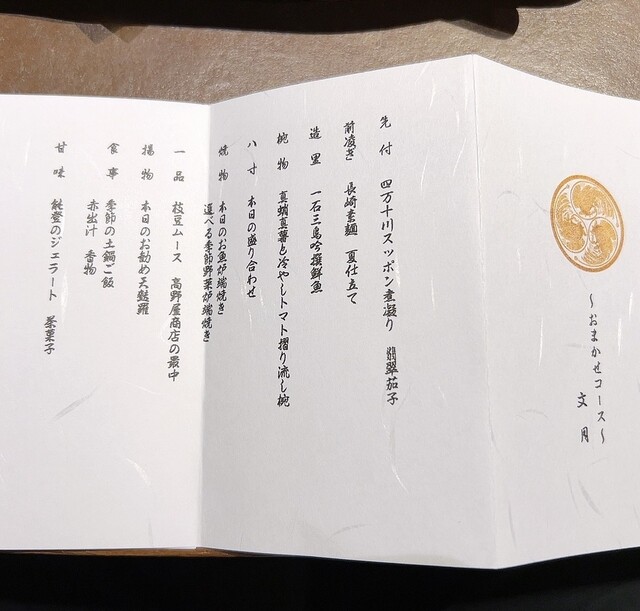 〜おまかせコース〜
文月
先付　四万十川スッポン煮凝り　翡翠茄子
前凌ぎ　長崎素麺　夏仕立て
造里　一石三鳥吟撰鮮魚
椀物　真蛸真薯と冷やしトマト摺り流し椀
八寸　本日の盛り合わせ
焼物　本日のお魚炉端焼き
選べる季節野菜炉端焼き
一品　枝豆ムース　高野屋商店の最中
揚物　本日のお勧め天麩羅
食事　季節の土鍋ご飯
赤出汁　香物
甘味　能登のジェラート　茶菓子